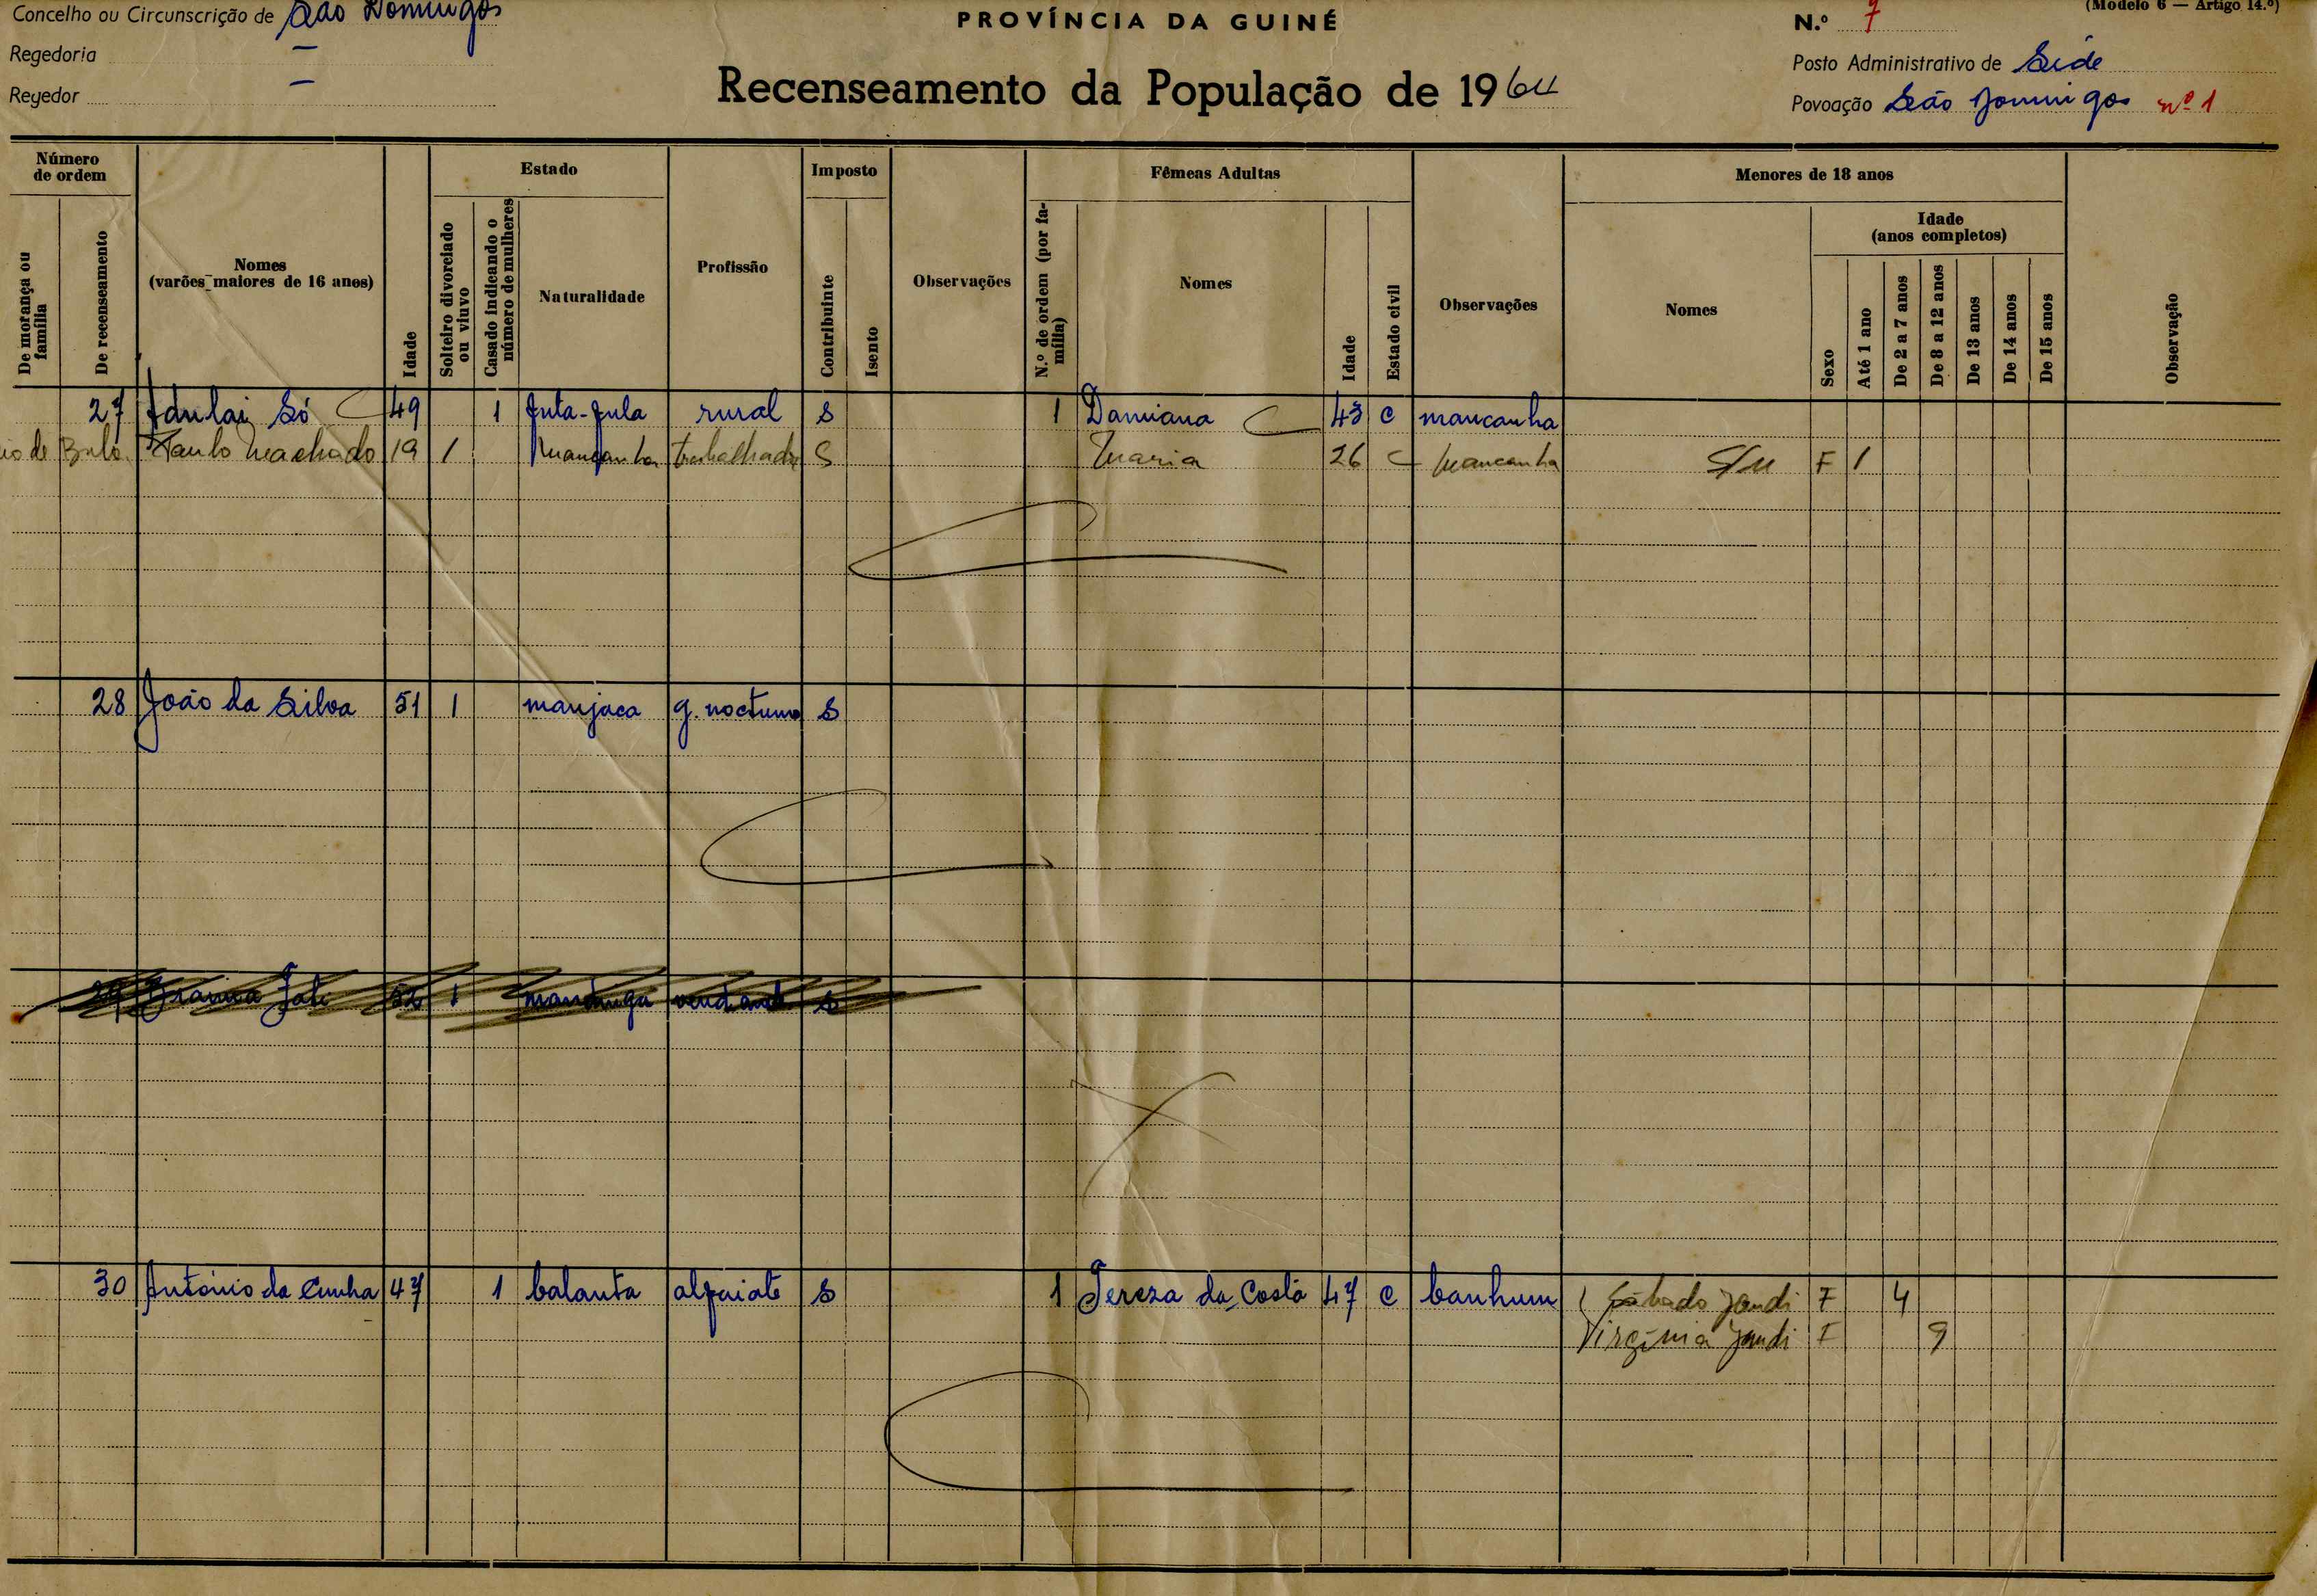 Concelho ou Circunscrição de São Domingos
Regedoria —
Regedor —
PROVÍNCIA DA GUINÉ
Recenseamento da População de 1964
(Modelo 6 — Artigo 14.º)
N.º 7
Posto Administrativo de Séde
Povoação São Domingos nº 1
Número de ordem
De morança ou família
De recenseamento
Nomes
(varões maiores de 16 anos)
Idade
Estado
Solteiro divorciado ou viuvo
Casado indicando o número de mulheres
Naturalidade
Profissão
Imposto
Contribuinte
Isento
Observações
Fêmeas Adultas
N.º de ordem (por família)
Nomes
Idade
Estado civil
Observações
Menores de 18 anos
Nomes
Sexo
Idade
(anos completos)
Até 1 ano
De 2 a 7 anos
De 8 a 12 anos
De 13 anos
De 14 anos
De 15 anos
Observação
27 Adulai Só 49 1 futa-fula rural S 1 Damiana 43 c mancanha
de Bula Paulo Machado 19 1 Mancanha trabalhador S Maria 26 c Mancanha S/N F 1
28 João da Silva 51 1 manjaca g. nocturno S
29 52 1 mandinga S
30 António da Cunha 47 1 balanta alfaiate S 1 Tereza da Costa 47 c banhum Sábado Jandi F 4
Virgínia Jandi F 9